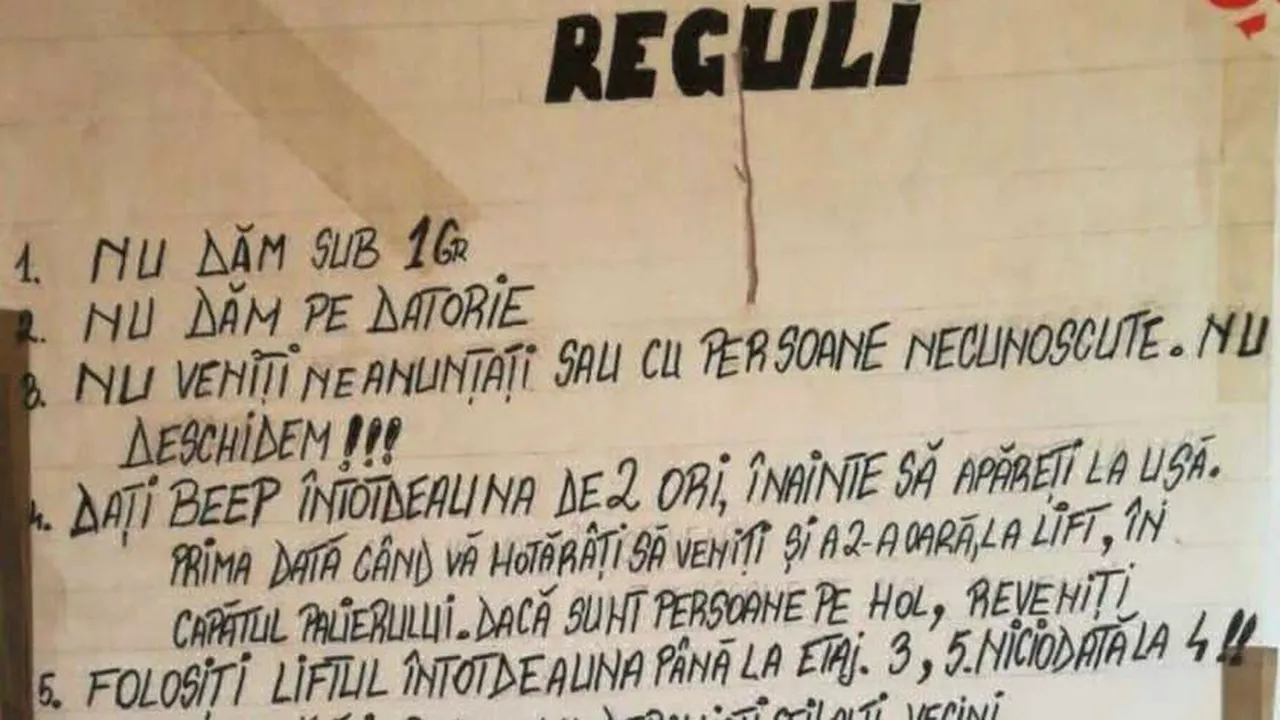 REGULI
1. NU DĂM SUB 1GR
2. NU DĂM PE DATORIE
3. NU VENIȚI NEANUNȚAȚI SAU CU PERSOANE NECUNOSCUTE. NU
DESCHIDEM !!!
4. DAȚI BEEP ÎNTOTDEAUNA DE 2 ORI, ÎNAINTE SĂ APĂREȚI LA UȘĂ.
PRIMA DATĂ CÂND VĂ HOTĂRÂȚI SĂ VENIȚI ȘI A 2-A OARĂ, LA LIFT, ÎN
CAPĂTUL PALIERULUI. DACĂ SUNT PERSOANE PE HOL, REVENIȚI
5. FOLOSIȚI LIFTUL ÎNTOTDEAUNA PÂNĂ LA ETAJ. 3, 5. NICIODATĂ LA 4 !!
VECINI